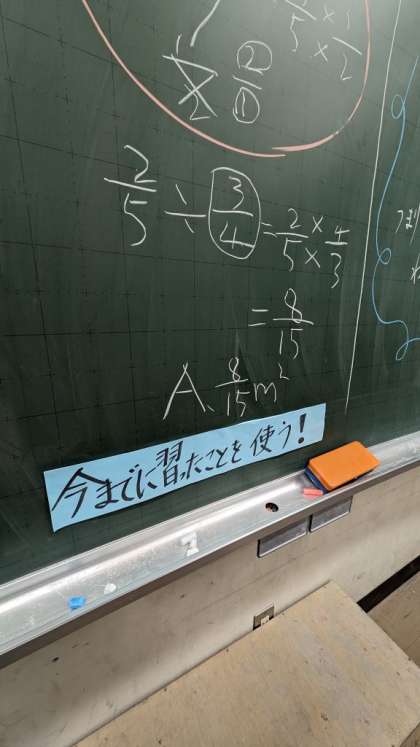 3/5 × 1/2
1/2 2/1
2/5 ÷ 3/4 = 2/5 × 4/3
= 8/15
A. 8/15 m²
今までに習ったことを使う!